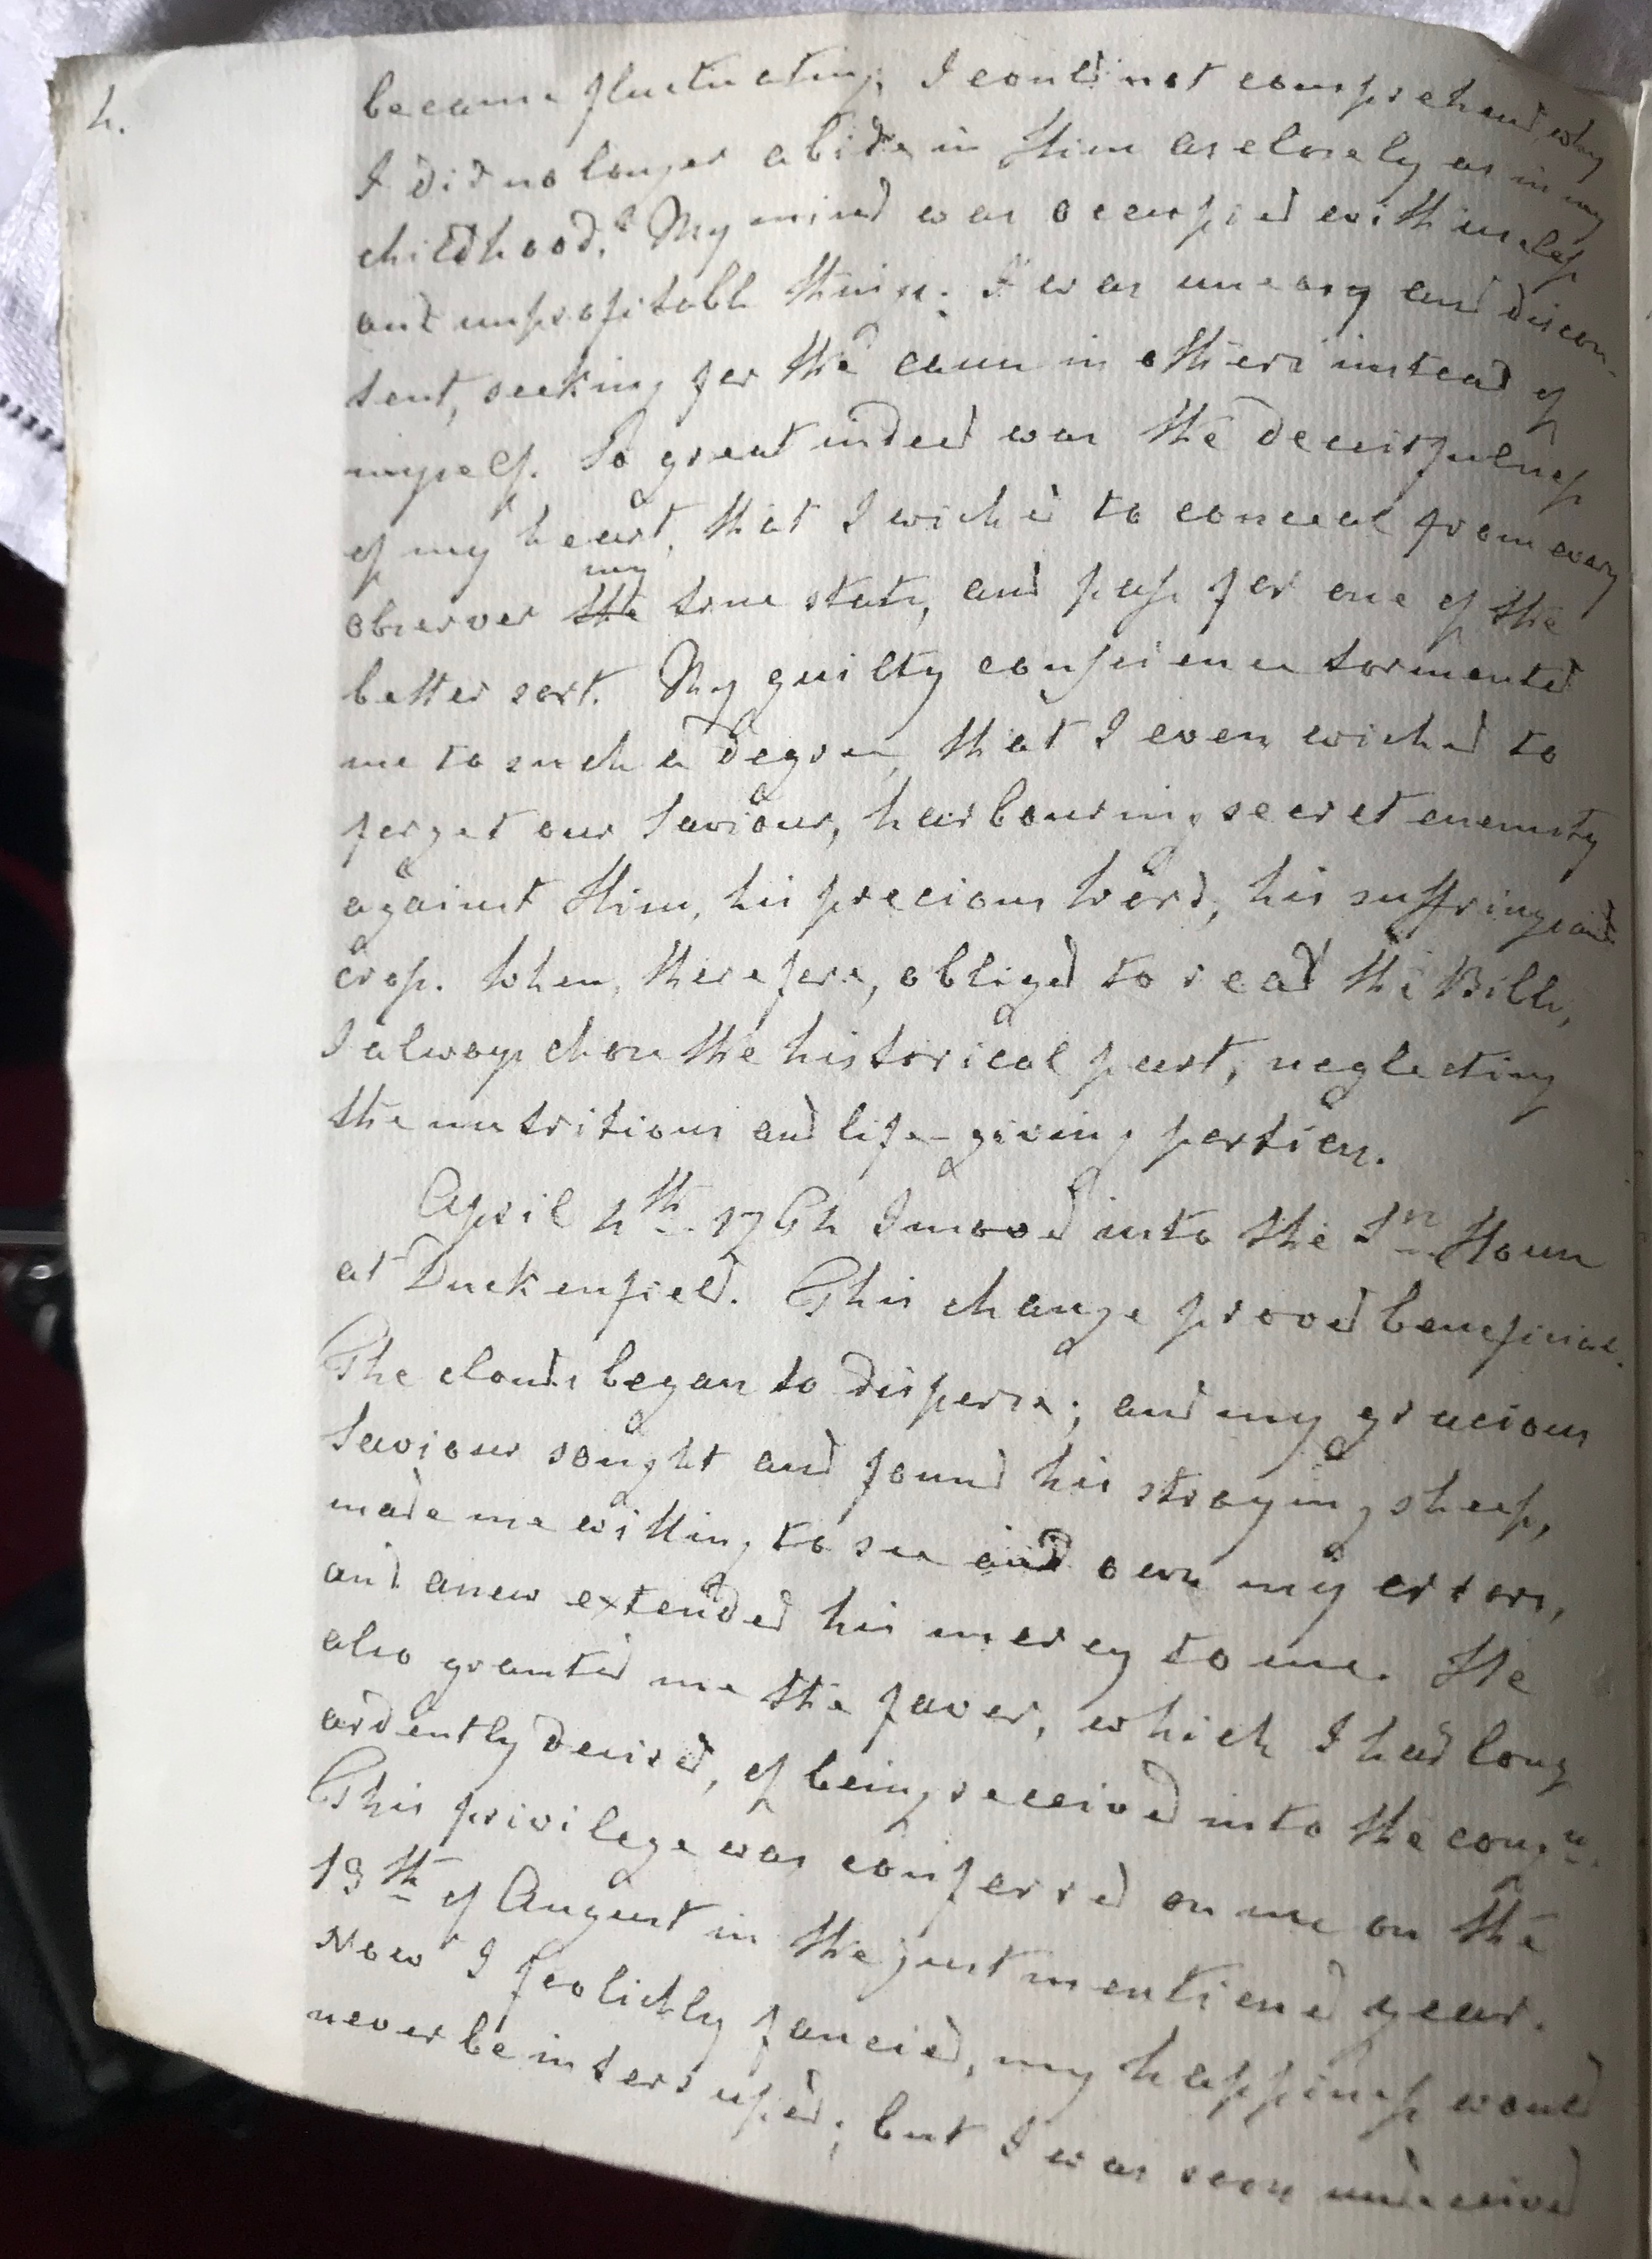 4.
became fluctuating, I could not comprehend, why
I did no longer abide in Him as closely as in my
childhood. My mind was occupied with useless
and unprofitable things. I was uneasy and discon-
tent, seeking for the cause in others instead of
myself. So great indeed was the deceitfulness
of my heart, that I wished to conceal from every
my
observer the true state, and pass for one of the
better sort. My guilty conscience tormented
me to such a degree, that I even wished to
forget our Saviour, harbouring secret enemity
against Him, his precious Word, his suffrings and
cross. When, therefore, obliged to read the Bible,
I always chose the historical part, neglecting
the nutritious and life-giving portion.
April 4th 1764 I moved into the Sn House
at Duckenfield. This change proved beneficial.
The clouds began to disperse; and my gracious
Saviour sought and found his straying sheep,
made me willing to see and own my errors,
and anew extended his mercy to me. He
also granted me the favor, which I had long
ardently desired, of being received into the congn.
This privilege was conferred on me on the
13th of August in the just mentioned year.
Now I foolishly fancied, my happiness would
never be interruped; but I was soon undeceived